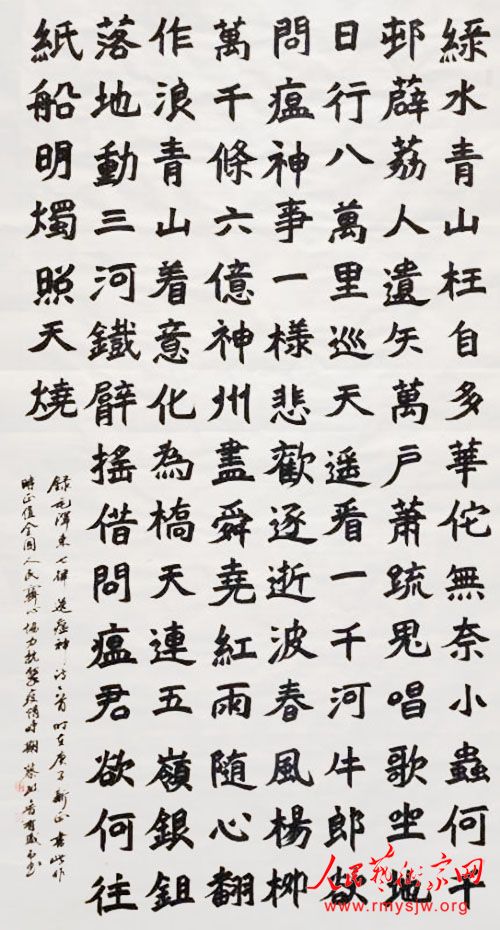 綠水青山枉自多華佗無奈小蟲何千
邨薜荔人遺矢萬戶蕭疏鬼唱歌坐地
日行八萬里巡天遙看一千河牛郎欲
問瘟神事一樣悲歡逐逝波春風楊柳
萬千條六億神州盡舜堯紅雨隨心翻
作浪青山着意化為橋天連五嶺銀鉏
落地動三河鐵臂搖借問瘟君欲何往
紙船明燭照天燒
錄毛澤東七律送瘟神詩二首時在庚子新正書此作
時正值全國人民齊心協力抗擊疫情時期
人民藝術家网
www.rmysjw.org